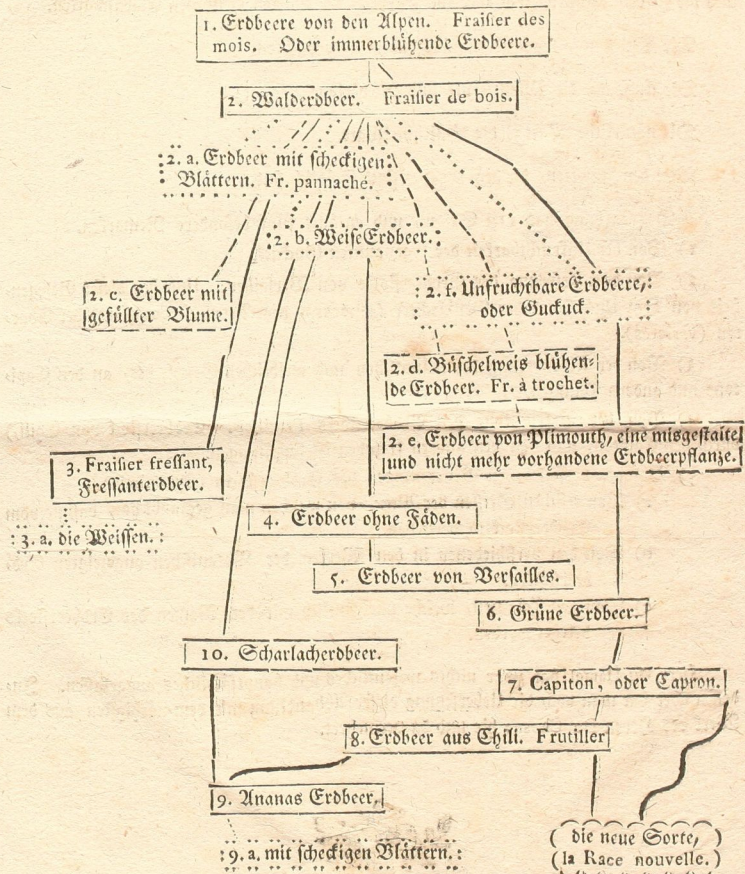 1. Erdbeere von den Alpen. Fraisier des
mois. Oder immerblühende Erdbeere.
2. Walderdbeer. Fraisier de bois.
2. a. Erdbeer mit scheckigen
Blättern. Fr. pannaché.
2. b. Weise Erdbeer.
2. c. Erdbeer mit
gefüllter Blume.
2. f. Unfruchtbare Erdbeere,
oder Guckuck.
2. d. Büschelweis blühen-
de Erdbeer. Fr. à trochet.
2. e. Erdbeer von Plimouth, eine misgestalte
und nicht mehr vorhandene Erdbeerpflanze.
3. Fraisier fressant,
Fressanterdbeer.
3. a. die Weissen.
4. Erdbeer ohne Fäden.
5. Erdbeer von Versailles.
6. Grüne Erdbeer.
10. Scharlacherdbeer.
7. Capiton, oder Capron.
8. Erdbeer aus Chili. Frutiller
9. Ananas Erdbeer.
9. a. mit scheckigen Blättern.
( die neue Sorte, )
(la Race nouvelle.)